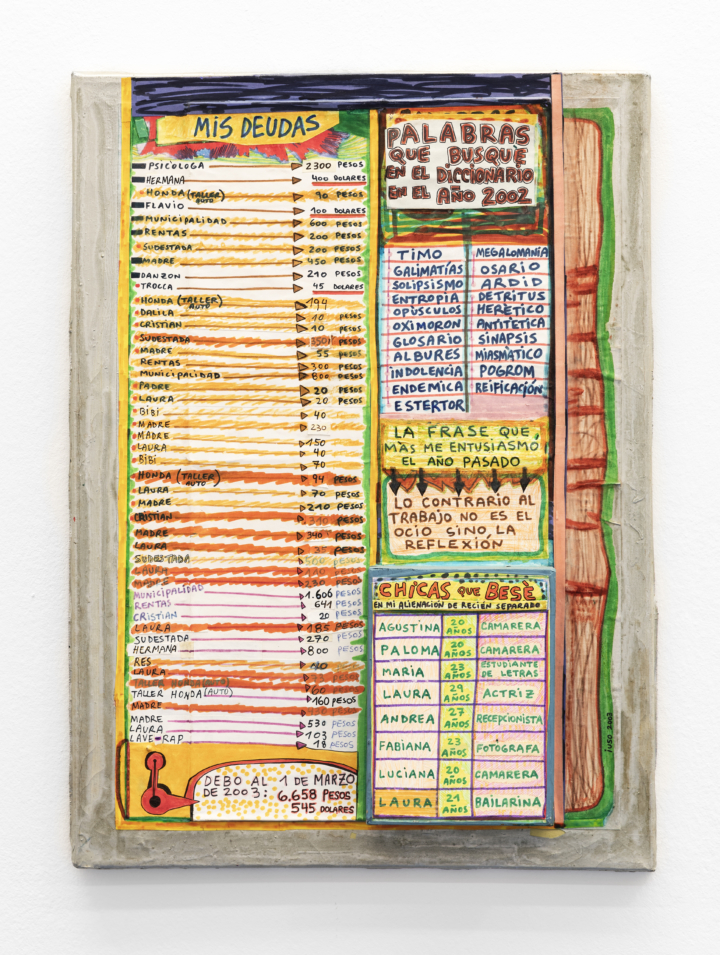 MIS DEUDAS
PSICOLOGA 2300 PESOS
HERMANA 400 DOLARES
HONDA (TALLER AUTO) 90 PESOS
FLAVIO 100 DOLARES
MUNICIPALIDAD 600 PESOS
RENTAS 200 PESOS
SUDESTADA 200 PESOS
MADRE 450 PESOS
DANZON 210 PESOS
TROCCA 45 DOLARES
HONDA (TALLER AUTO) 194
DALILA 10 PESOS
CRISTIAN 10 PESOS
SUDESTADA 350 PESOS
MADRE 55 PESOS
RENTAS 300 PESOS
MUNICIPALIDAD 800 PESOS
PADRE 20 PESOS
LAURA 20 PESOS
BIBI 40
MADRE 230
MADRE
LAURA 150
BIBI 40
70
HONDA (TALLER AUTO) 94 PESOS
LAURA 70 PESOS
MADRE 210 PESOS
CRISTIAN 310 PESOS
MADRE 340 PESOS
LAURA 35 PESOS
SUDESTADA PESOS
LAURA PESOS
PESOS
MUNICIPALIDAD 1.606 PESOS
RENTAS 641 PESOS
CRISTIAN 20 PESOS
LAURA 185 PESOS
SUDESTADA 270 PESOS
HERMANA 800 PESOS
RES
LAURA
TALLER HONDA (AUTO)
TALLER HONDA (AUTO) 160 PESOS
MADRE
MADRE 530 PESOS
LAURA 103 PESOS
LAVE-RAP 18 PESOS
DEBO AL 1 DE MARZO
DE 2003: 6.658 PESOS
545 DOLARES
PALABRAS
QUE BUSQUE
EN EL DICCIONARIO
EN EL AÑO 2002
TIMO MEGALOMANÍA
GALIMATÍAS OSARIO
SOLIPSISMO ARDID
ENTROPIA DETRITUS
OPÚSCULOS HERÉTICO
OXIMORON ANTITÉTICA
GLOSARIO SINAPSIS
ALBURES MIASMÁTICO
INDOLENCIA POGROM
ENDEMICA REIFICACIÓN
ESTERTOR
LA FRASE QUE,
MÁS ME ENTUSIASMO
EL AÑO PASADO
LO CONTRARIO AL
TRABAJO NO ES EL
OCIO SINO, LA
REFLEXIÓN
CHICAS QUE BESÈ
EN MI ALIENACIÓN DE RECIÉN SEPARADO
AGUSTINA 20 AÑOS CAMARERA
PALOMA 20 AÑOS CAMARERA
MARIA 23 AÑOS ESTUDIANTE DE LETRAS
LAURA 29 AÑOS ACTRIZ
ANDREA 27 AÑOS RECEPCIONISTA
FABIANA 23 AÑOS FOTOGRAFA
LUCIANA 20 AÑOS CAMARERA
LAURA 21 AÑOS BAILARINA
iuso 2003